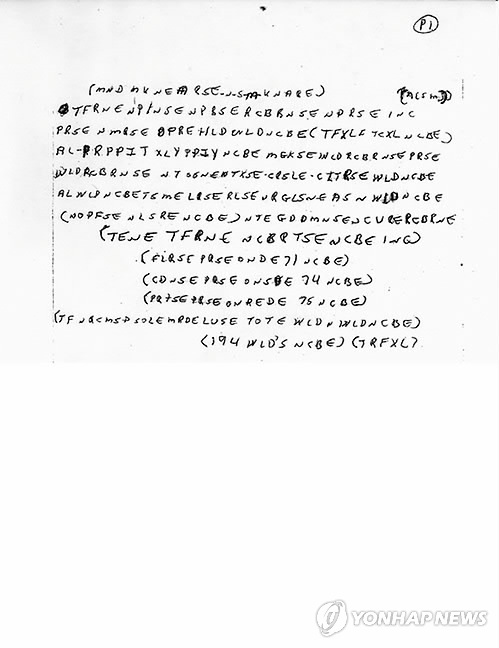 P1
(MND MKNEARSE-N-S-M-KNARE) (ACSM)
TFRNENPINSENPBSERCBBNSENPRSEINC
PRSENMRSEOPREHLDWLDNCBE(TFXLFTCXLNCBE)
AL-PRPPITXLYPPIYNCBEMGKSEINCDRCBRNSEPRSE
WLDRCBRNSENTSSNENTXSE-CRSLE-CITRSEWLDNCBE
ALWLPNCBETSMELRSERLSEURGLSNEASNWLDNCBE
(NOPFSENLSRENCBE)NTEGDDMNSENCURERCBRNE
(TENETFRNENCBRTSENCBEING)
(FLRSEPRSEONDE71NCBE)
(CDNSEPRSEONSDE74NCBE)
(PRTSEPRSEONREDE75NCBE)
(TFNRCMSPSOLEMRDELUSETOTEWLDNWLDNCBE)
(194WLD'SNCBE)(TRFXL)
YONHAP NEWS